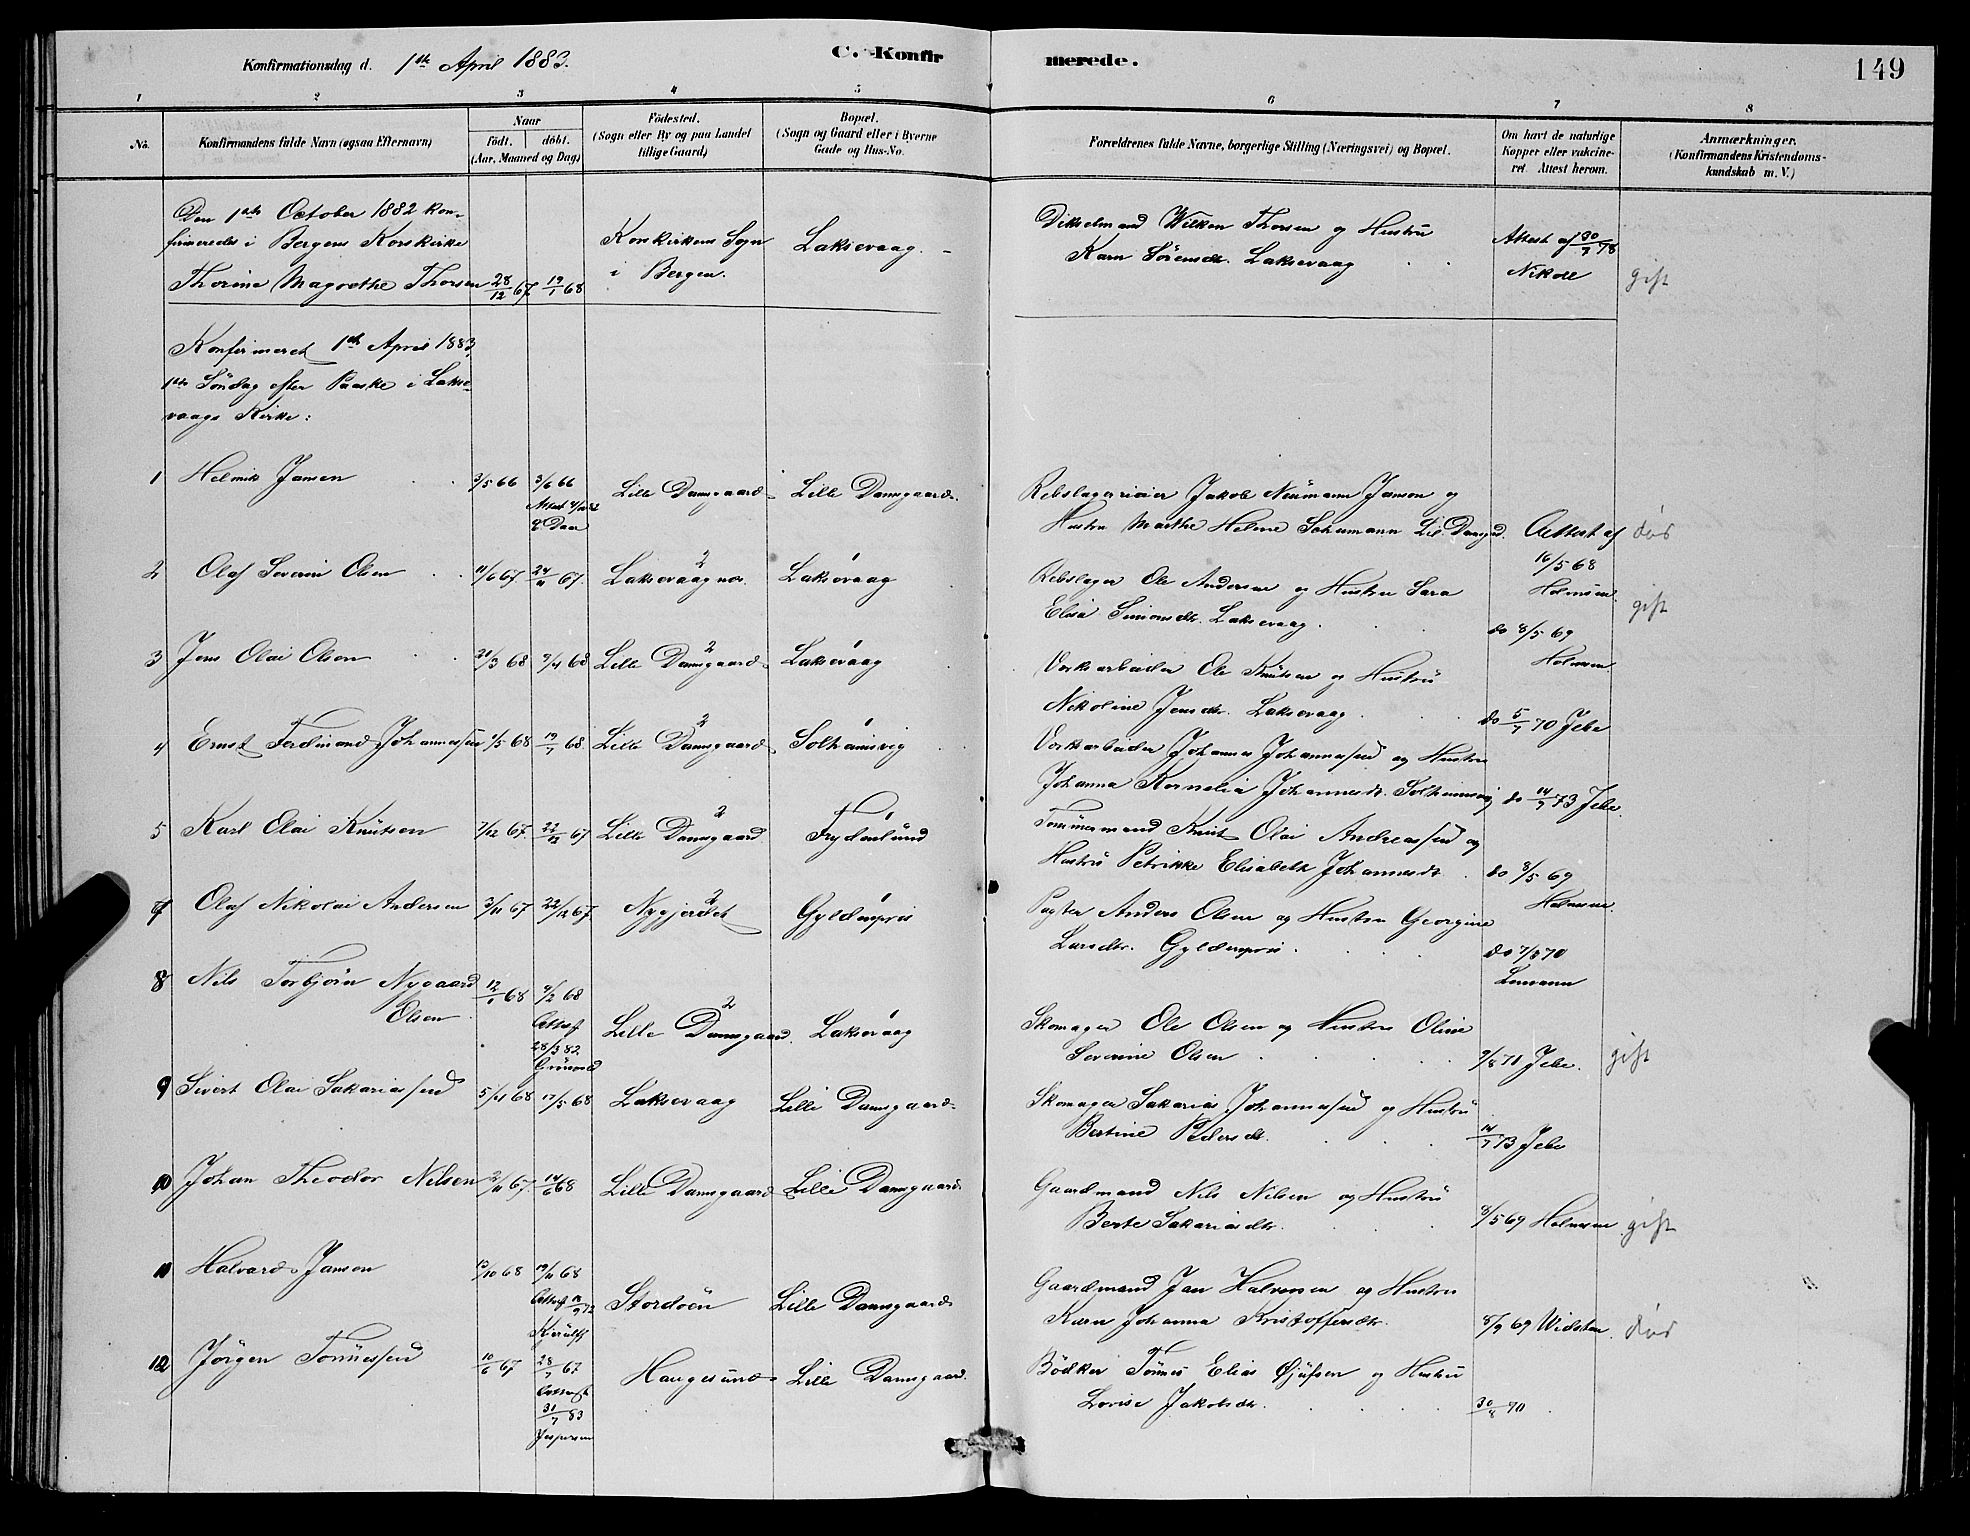 Konfirmationsdag d. 1ste April 1883.
C. Konfirmerede.
149
1 2 3 4 5 6 7 8
No.
Konfirmandens fulde Navn (ogsaa Efternavn)
Naar
födt. döbt.
(Aar, Maaned og Dag)
Födested.
(Sogn eller By og paa Landet
tillige Gaard)
Bopæl.
(Sogn og Gaard eller i Byerne
Gade og Hus-No.
Forældrenes fulde Navne, borgerlige Stilling (Næringsvei) og Bopæl.
Om havt de naturlige
Kopper eller vakcine-
ret. Attest herom.
Anmærkninger.
(Konfirmandens Kristendoms-
kundskab m. V.)
Den 1ste October 1882 kon-
firmeredes i Bergens Korskirke
Thorine Magrethe Thorsen 28/12 67 19/1 68
Korskirkens Sogn
i Bergen.
Laksevaag.
Dikselmand Wilken Thorsen og Hustru
Karn Sörensdr. Laksevaag
Attest af 30/7 78
gift
Konfirmeret 1ste April 1883,
1ste Söndag efter Paaske i Lakse-
vaags Kirke:
1 Helmik Jansen 3/5 66 3/6 66 Lille Damsgaard Lille Damsgaard
Attest
Rebslagersvier Jakob Neumann Janson og
Hustru Marthe Helene Schumann Lil. Damsgd. Attest af död
16/5 68
Holmsen
2 Olaf Severin Olsen 11/6 67 24/11 67 Laksevaag Laksevaag
Rebslager Ole Andersen og Hustru Sara
Elisa Simonsdr. Laksevaag. do 8/5 69 gift
Holmsen
3 Jens Olai Olson 20/3 68 9/4 68 Lille Damsgaard 2 Laksevaag
Verksarbeider Ole Knutsen og Hustru
Nikoline Jensdr. Laksevaag. do 5/7 70 Jebe
4 Ernst Ferdinand Johannessen 1/5 68 19/7 68 Lille Damsgaard 2 Solheimsvig
Verksarbeider Johannes Johannessen og Hustru
Johanna Kornelia Johannesdr. Solheimsvig do 14/7 73 Jebe
5 Karl Olai Knutsen 7/12 67 22/12 67 Lille Damsgaard 2 Frydenlund
Tömmermand Knut Olai Andreassen og
Hustru Petrikke Elisabeth Johannesdr. do 8/5 69
Holmsen
7 Olaf Nikolai Andersen 3/11 67 22/12 67 Nygjerdet 2 Gyldenpris
Pagter Anders Olsen og Hustru Georgine
Larsdr. Gyldenpris. do 7/8 70
8 Nils Torbjörn Nygaard 12/1 68 9/2 68
Olsen
Attest
28/3 82
Lille Damsgaard 2 Laksevaag
Skomager Ole Olsen og Hustru Oline
Severine Olsen 9/8 71 Jebe. gift
9 Sivert Olai Sakariassen 5/4 68 17/5 68 Laksevaag Lille Damsgaard
Skomager Sakarias Johannessen og Hustru
Bertine Pedersdr. 14/7 73 Jebe
10 Johan Theodor Nilsen 2/11 67 14/6 68 Lille Damsgaard Lille Damsgaard
Gaardmand Nils Nilsen og Hustru
Berte Sakariasdr. 8/5 69 Holmsen gift
11 Halvard Janson 13/10 68 19/11 68 Stordöen Lille Damsgaard
Attest
Kierulff
Gaardmand Jan Halvorsen og Hustru
Karn Johanna Kristoffersdr. 8/9 69 Widsten död
12 Jörgen Tönnessen 10/6 67 28/7 67 Haugesund Lille Damsgaard
Attest
31/7 83
Jespersen
Bödker Tönnes Elias Öjufsen og Hustru
Lovise Jakobsdr. 30/8 70